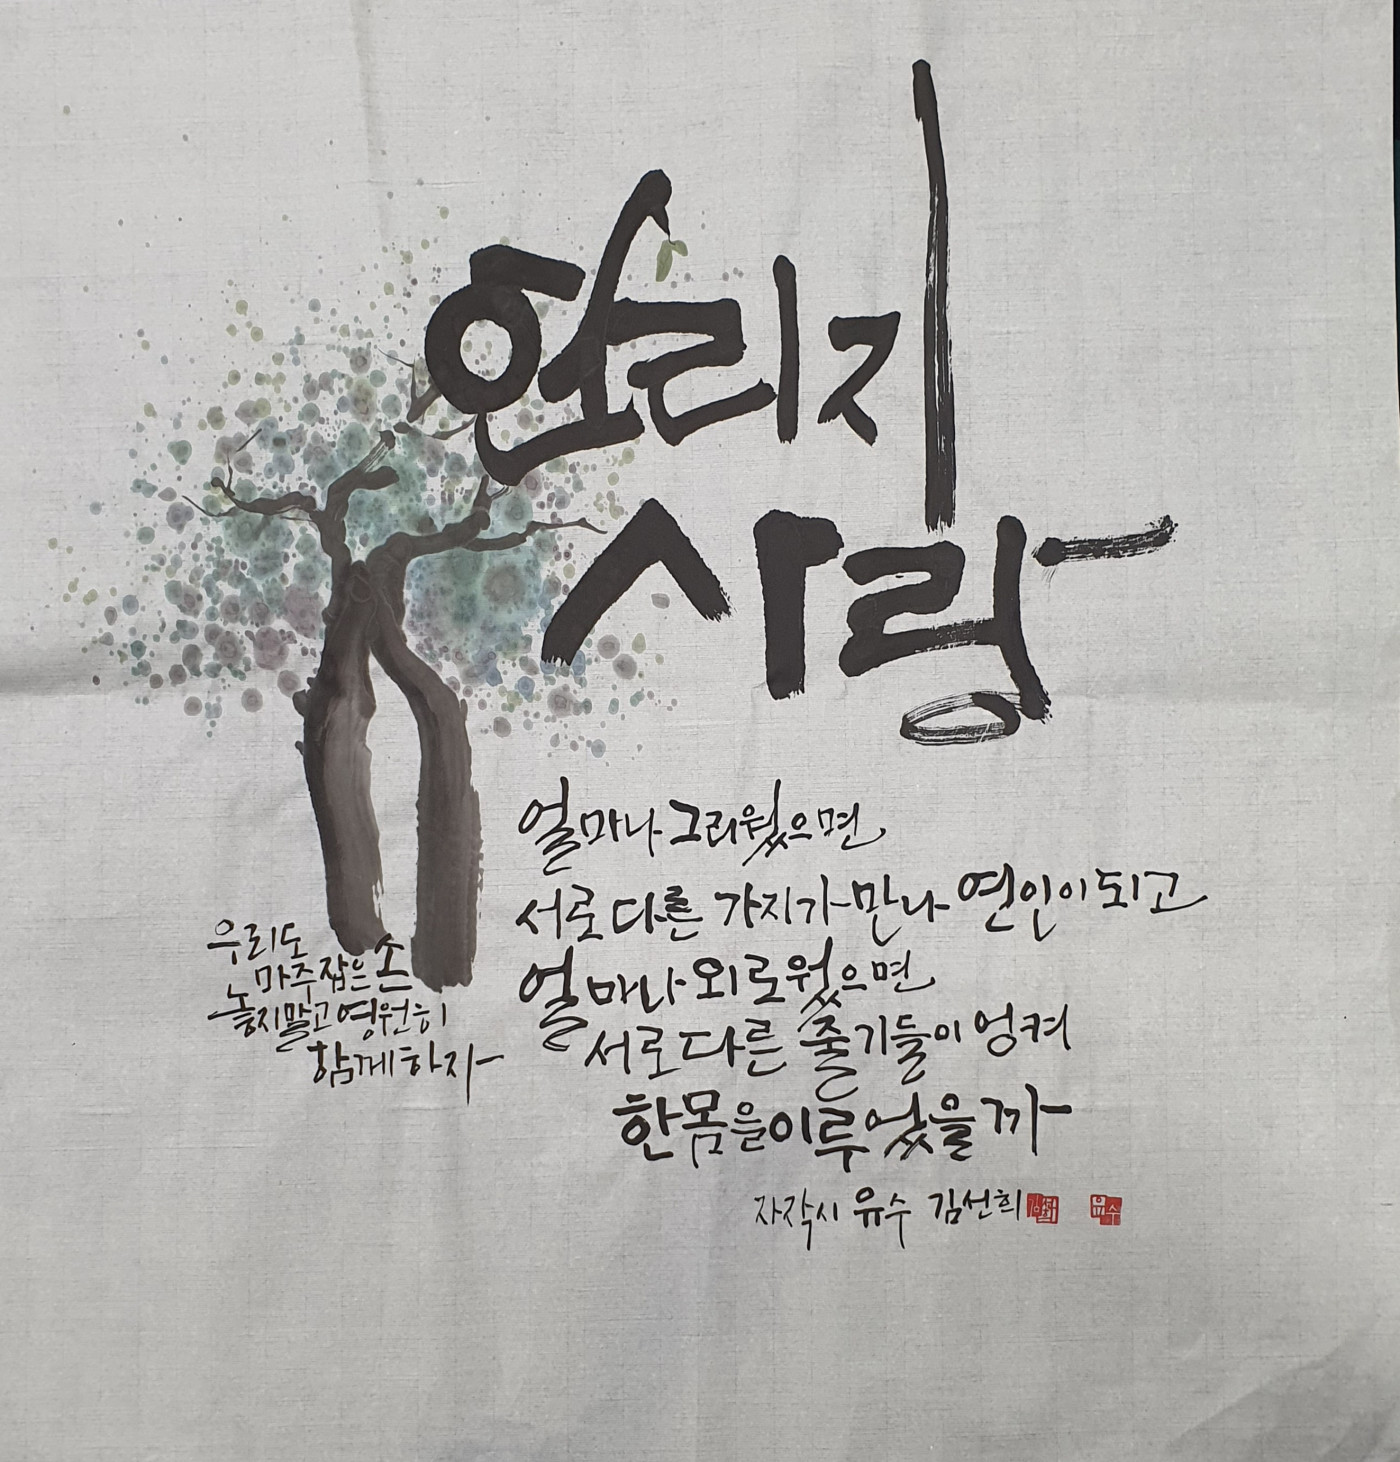 연리지
사랑
얼마나 그리웠으면
서로 다른 가지가 만나 연인이 되고
얼마나 외로웠으면
서로 다른 줄기들이 엉켜
한몸을 이루었을까
우리도
마주잡은 손
놓지말고 영원히
함께하자
자작시 유수 김선희
유수